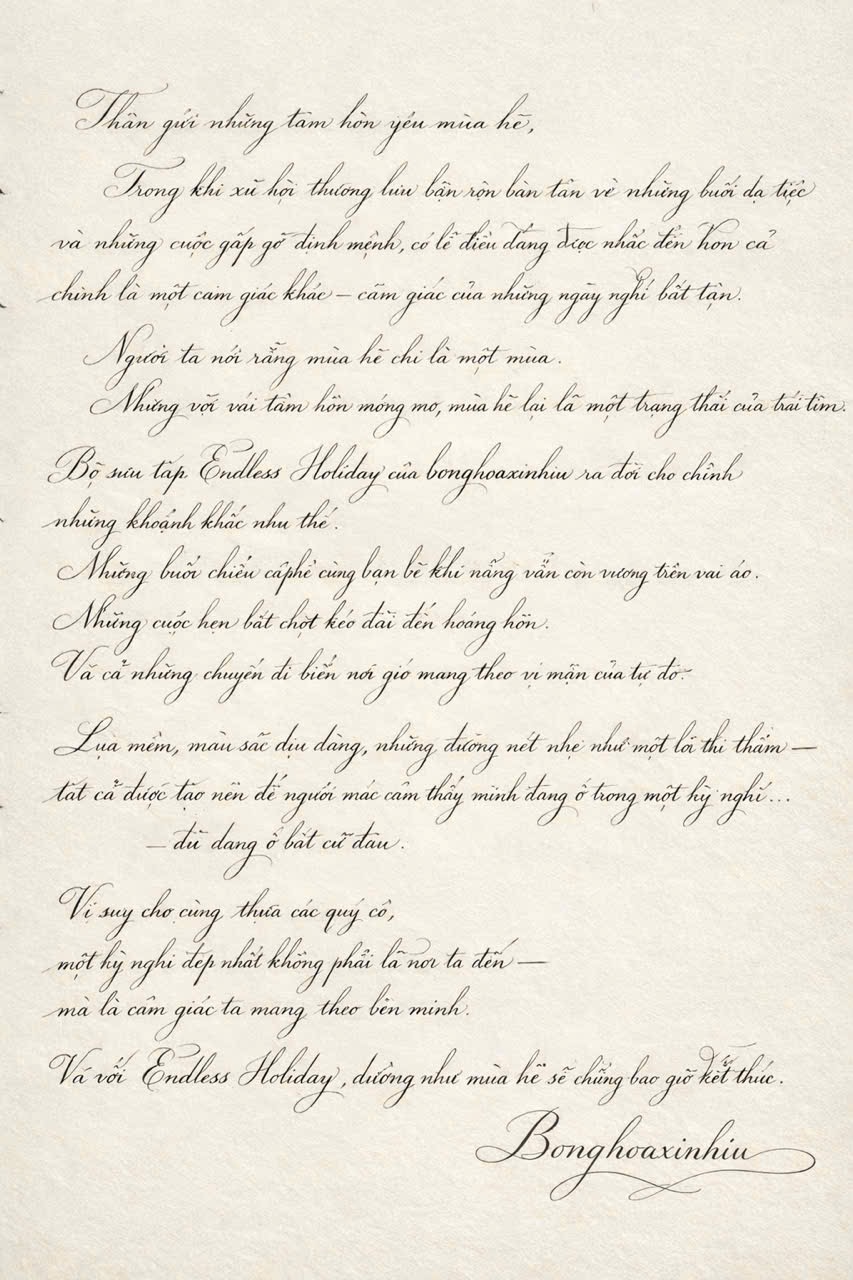 Thân gửi những tâm hồn yêu mùa hè,
Trong khi xã hội thượng lưu bận rộn bàn tán về những buổi dạ tiệc
và những cuộc gặp gỡ định mệnh, có lẽ điều đáng được nhắc đến hơn cả
chính là một cảm giác khác – cảm giác của những ngày nghỉ bất tận.
Người ta nói rằng mùa hè chỉ là một mùa.
Nhưng với vài tâm hồn mộng mơ, mùa hè lại là một trạng thái của trái tim.
Bộ sưu tập Endless Holiday của bonghoaxinhiu ra đời cho chính
những khoảnh khắc như thế.
Những buổi chiều càphê cùng bạn bè khi nắng vẫn còn vương trên vai áo.
Những cuộc hẹn bất chợt kéo dài đến hoàng hôn.
Và cả những chuyến đi biển nơi gió mang theo vị mặn của tự do.
Lụa mềm, màu sắc dịu dàng, những đường nét nhẹ như một lời thì thầm —
tất cả được tạo nên để người mặc cảm thấy mình đang ở trong một kỳ nghỉ...
— dù đang ở bất cứ đâu.
Vì suy cho cùng thưa các quý cô,
một kỳ nghỉ đẹp nhất không phải là nơi ta đến —
mà là cảm giác ta mang theo bên mình.
Và với Endless Holiday, dường như mùa hè sẽ chẳng bao giờ kết thúc.
Bonghoaxinhiu